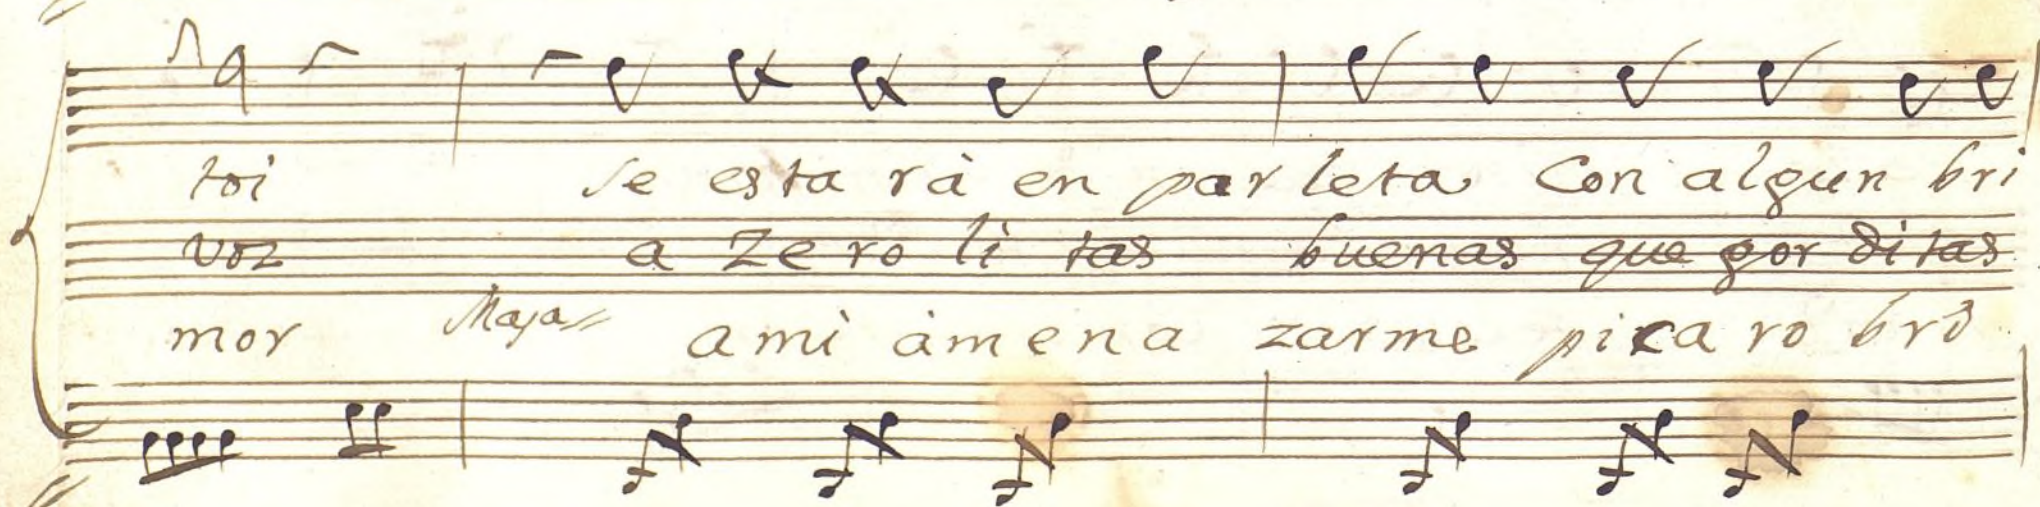 toi se esta rà en par leta Con algun bri
voz a Ze ro li tas buenas que gor ditas
mor Maja= a mi àmena zarme pica ro bro